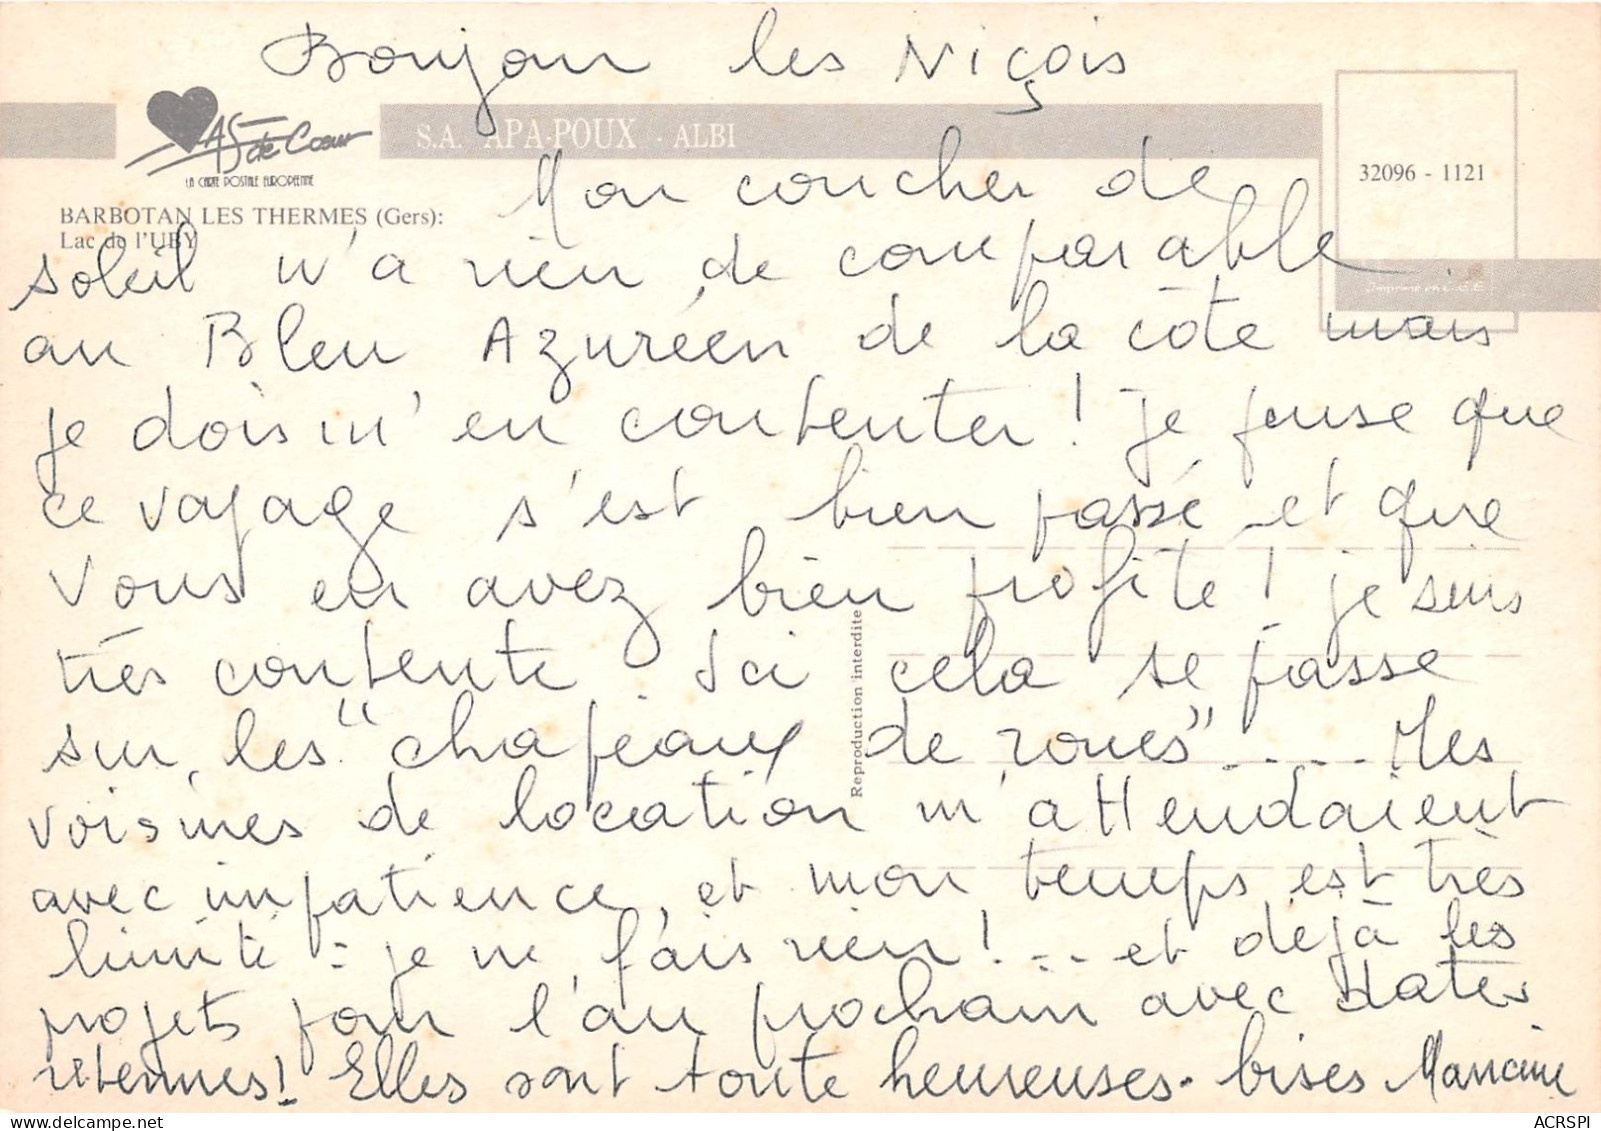 Bonjour les Niçois
AS de Cœur
LA CARTE POSTALE EUROPÉENNE
S.A. APA-POUX - ALBI
32096 - 1121
BARBOTAN LES THERMES (Gers):
Lac de l'UBY
Imprimé en C.E.E.
Reproduction interdite
Mon coucher de
soleil n'a rien de comparable
au Bleu Azuréen de la côte mais
je dois m'en contenter ! Je pense que
ce voyage s'est bien passé et que
Vous en avez bien profité ! je suis
très contente. Ici cela se passe
sur les "chapeaux de roues"..... Mes
voisines de location m'attendaient
avec impatience, et mon temps est très
limité : je ne fais rien !... et déjà les
projets pour l'an prochain avec dates
retenues ! Elles sont toute heureuses. bises
ACRSPI